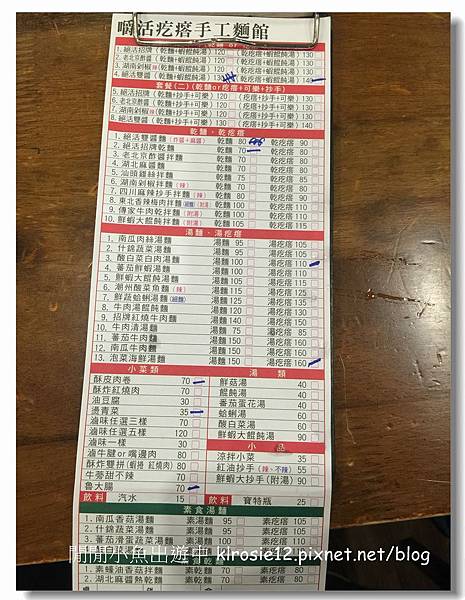 嚼活疙瘩手工麵館
1. 絕活招牌 (乾麵+蝦餛飩湯) 120 (疙瘩+蝦餛飩湯) 130
2. 老北京酢醬 (乾麵+蝦餛飩湯) 120 (疙瘩+蝦餛飩湯) 130
3. 湖南剁椒 (乾麵+蝦餛飩湯) 120 (疙瘩+蝦餛飩湯) 130
4. 絕活雙醬 (乾麵+蝦餛飩湯) 130 (疙瘩+蝦餛飩湯) 140
套餐(二) (乾麵or疙瘩+可樂+抄手)
5. 絕活招牌 (乾麵+抄手+可樂) 120 (疙瘩+抄手+可樂) 130
6. 老北京酢醬 (乾麵+抄手+可樂) 120 (疙瘩+抄手+可樂) 130
7. 湖南剁椒 (乾麵+抄手+可樂) 120 (疙瘩+抄手+可樂) 130
8. 絕活雙醬 (乾麵+抄手+可樂) 130 (疙瘩+抄手+可樂) 140
乾麵、乾疙瘩
1. 絕活雙醬麵 (炸醬+麻醬) 乾麵 80 乾疙瘩 90
2. 絕活招牌乾麵 乾麵 70 乾疙瘩 80
3. 老北京酢醬拌麵 乾麵 70 乾疙瘩 80
4. 湖北麻醬麵 乾麵 70 乾疙瘩 80
5. 汕頭雞絲拌麵 乾麵 70 乾疙瘩 80
6. 湖南剁椒拌麵 (辣) 乾麵 70 乾疙瘩 80
7. 四川麻辣抄手拌麵 (辣) 乾麵 80 乾疙瘩 90
8. 東北香辣梅肉拌麵 (附湯) 乾麵 90 乾疙瘩 100
9. 傳家牛肉乾拌麵 (附湯) 乾麵 100 乾疙瘩 110
10. 鮮蝦大餛飩拌麵 (附湯) 乾麵 95 乾疙瘩 105
湯麵、湯疙瘩
1. 南瓜肉絲湯麵 湯麵 95 湯疙瘩 105
2. 什錦蔬菜湯麵 湯麵 95 湯疙瘩 105
3. 酸白菜白肉湯麵 湯麵 100 湯疙瘩 110
4. 蕃茄鮮蝦湯麵 湯麵 100 湯疙瘩 110
5. 鮮蝦大餛飩湯麵 湯麵 100 湯疙瘩 110
6. 潮州酸菜魚麵 (辣) 湯麵 150 湯疙瘩 160
7. 鮮蔬蛤蜊湯麵 (細麵) 湯麵 100 湯疙瘩 110
8. 牛肉湯餛飩麵 湯麵 100 湯疙瘩 110
9. 招牌紅燒牛肉麵 湯麵 140 湯疙瘩 150
10. 牛肉清湯麵 湯麵 75 湯疙瘩 85
11. 蕃茄牛肉麵 湯麵 150 湯疙瘩 160
12. 南瓜牛肉麵 湯麵 150 湯疙瘩 160
13. 泡菜海鮮湯麵 湯麵 150 湯疙瘩 160
小菜類 湯類
酥皮肉卷 70 鮮菇湯 40
酥炸紅燒肉 70 餛飩湯 40
油豆腐 30 蕃茄蛋花湯 40
燙青菜 35 蛤蜊湯 60
滷味任選三樣 70 酸白菜湯 60
滷味任選五樣 120 鮮蝦大餛飩湯 90
滷味一樣 30 小品
滷牛腱or嘴邊肉 80 涼拌小菜 35
酥炸雙拼(蝦捲 紅燒肉) 80 紅油抄手 (辣、不辣) 55
牛蒡甜不辣 70 鮮蝦大抄手 (附湯) 90
魯大腸 70
飲料 汽水 15 飲料 寶特瓶 25
素食湯麵
1. 南瓜香菇湯麵 素湯麵 95 素疙瘩 105
2. 什錦蔬菜湯麵 素湯麵 95 素疙瘩 105
3. 蕃茄滑蛋蔬菜湯麵 素湯麵 100 素疙瘩 110
閒閒小魚出遊中 klrosie12.pixnet.net/blog
1. 素蠔油香菇拌麵 素乾麵 70 素疙瘩 80
2. 湖北麻醬熱乾麵 素乾麵 70 素疙瘩 80